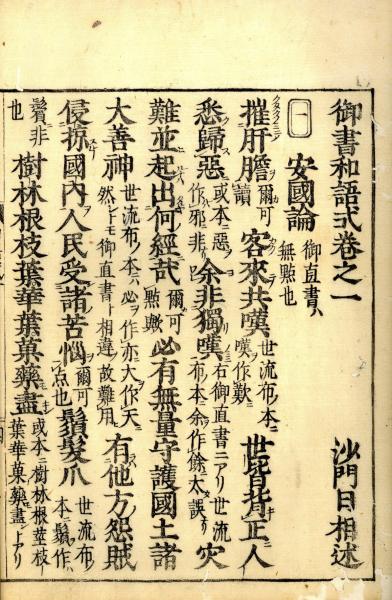 御書和語式卷之一　沙門日相述
一　安國論　御直書ハ無點也
摧肝膽　爾可讀　客來共嘆　世流布ノ本ニ嘆ノ作歎ニ　世皆背正人
悉歸惡　或本ニ惡ヲ作邪ニ非ナリ　余非獨嘆　右御直書ニアリ世流布ノ本ニ余作餘太誤ナリ　灾
難並起出何經哉　爾可點歟　必有無量守護國土諸
大善神　世流布ノ本ニハ必ヲ作亦大作天ニ然レトモ御直書ト相違ノ故難用　有他方ノ怨賊
侵掠國內人民受諸苦惱　爾可點也　鬚髮爪　世流布ノ本ニ鬚ヲ作
鬢非也　樹林根枝葉華葉菓藥盡　或本ニ樹林根莖枝葉華菓藥盡トアリ